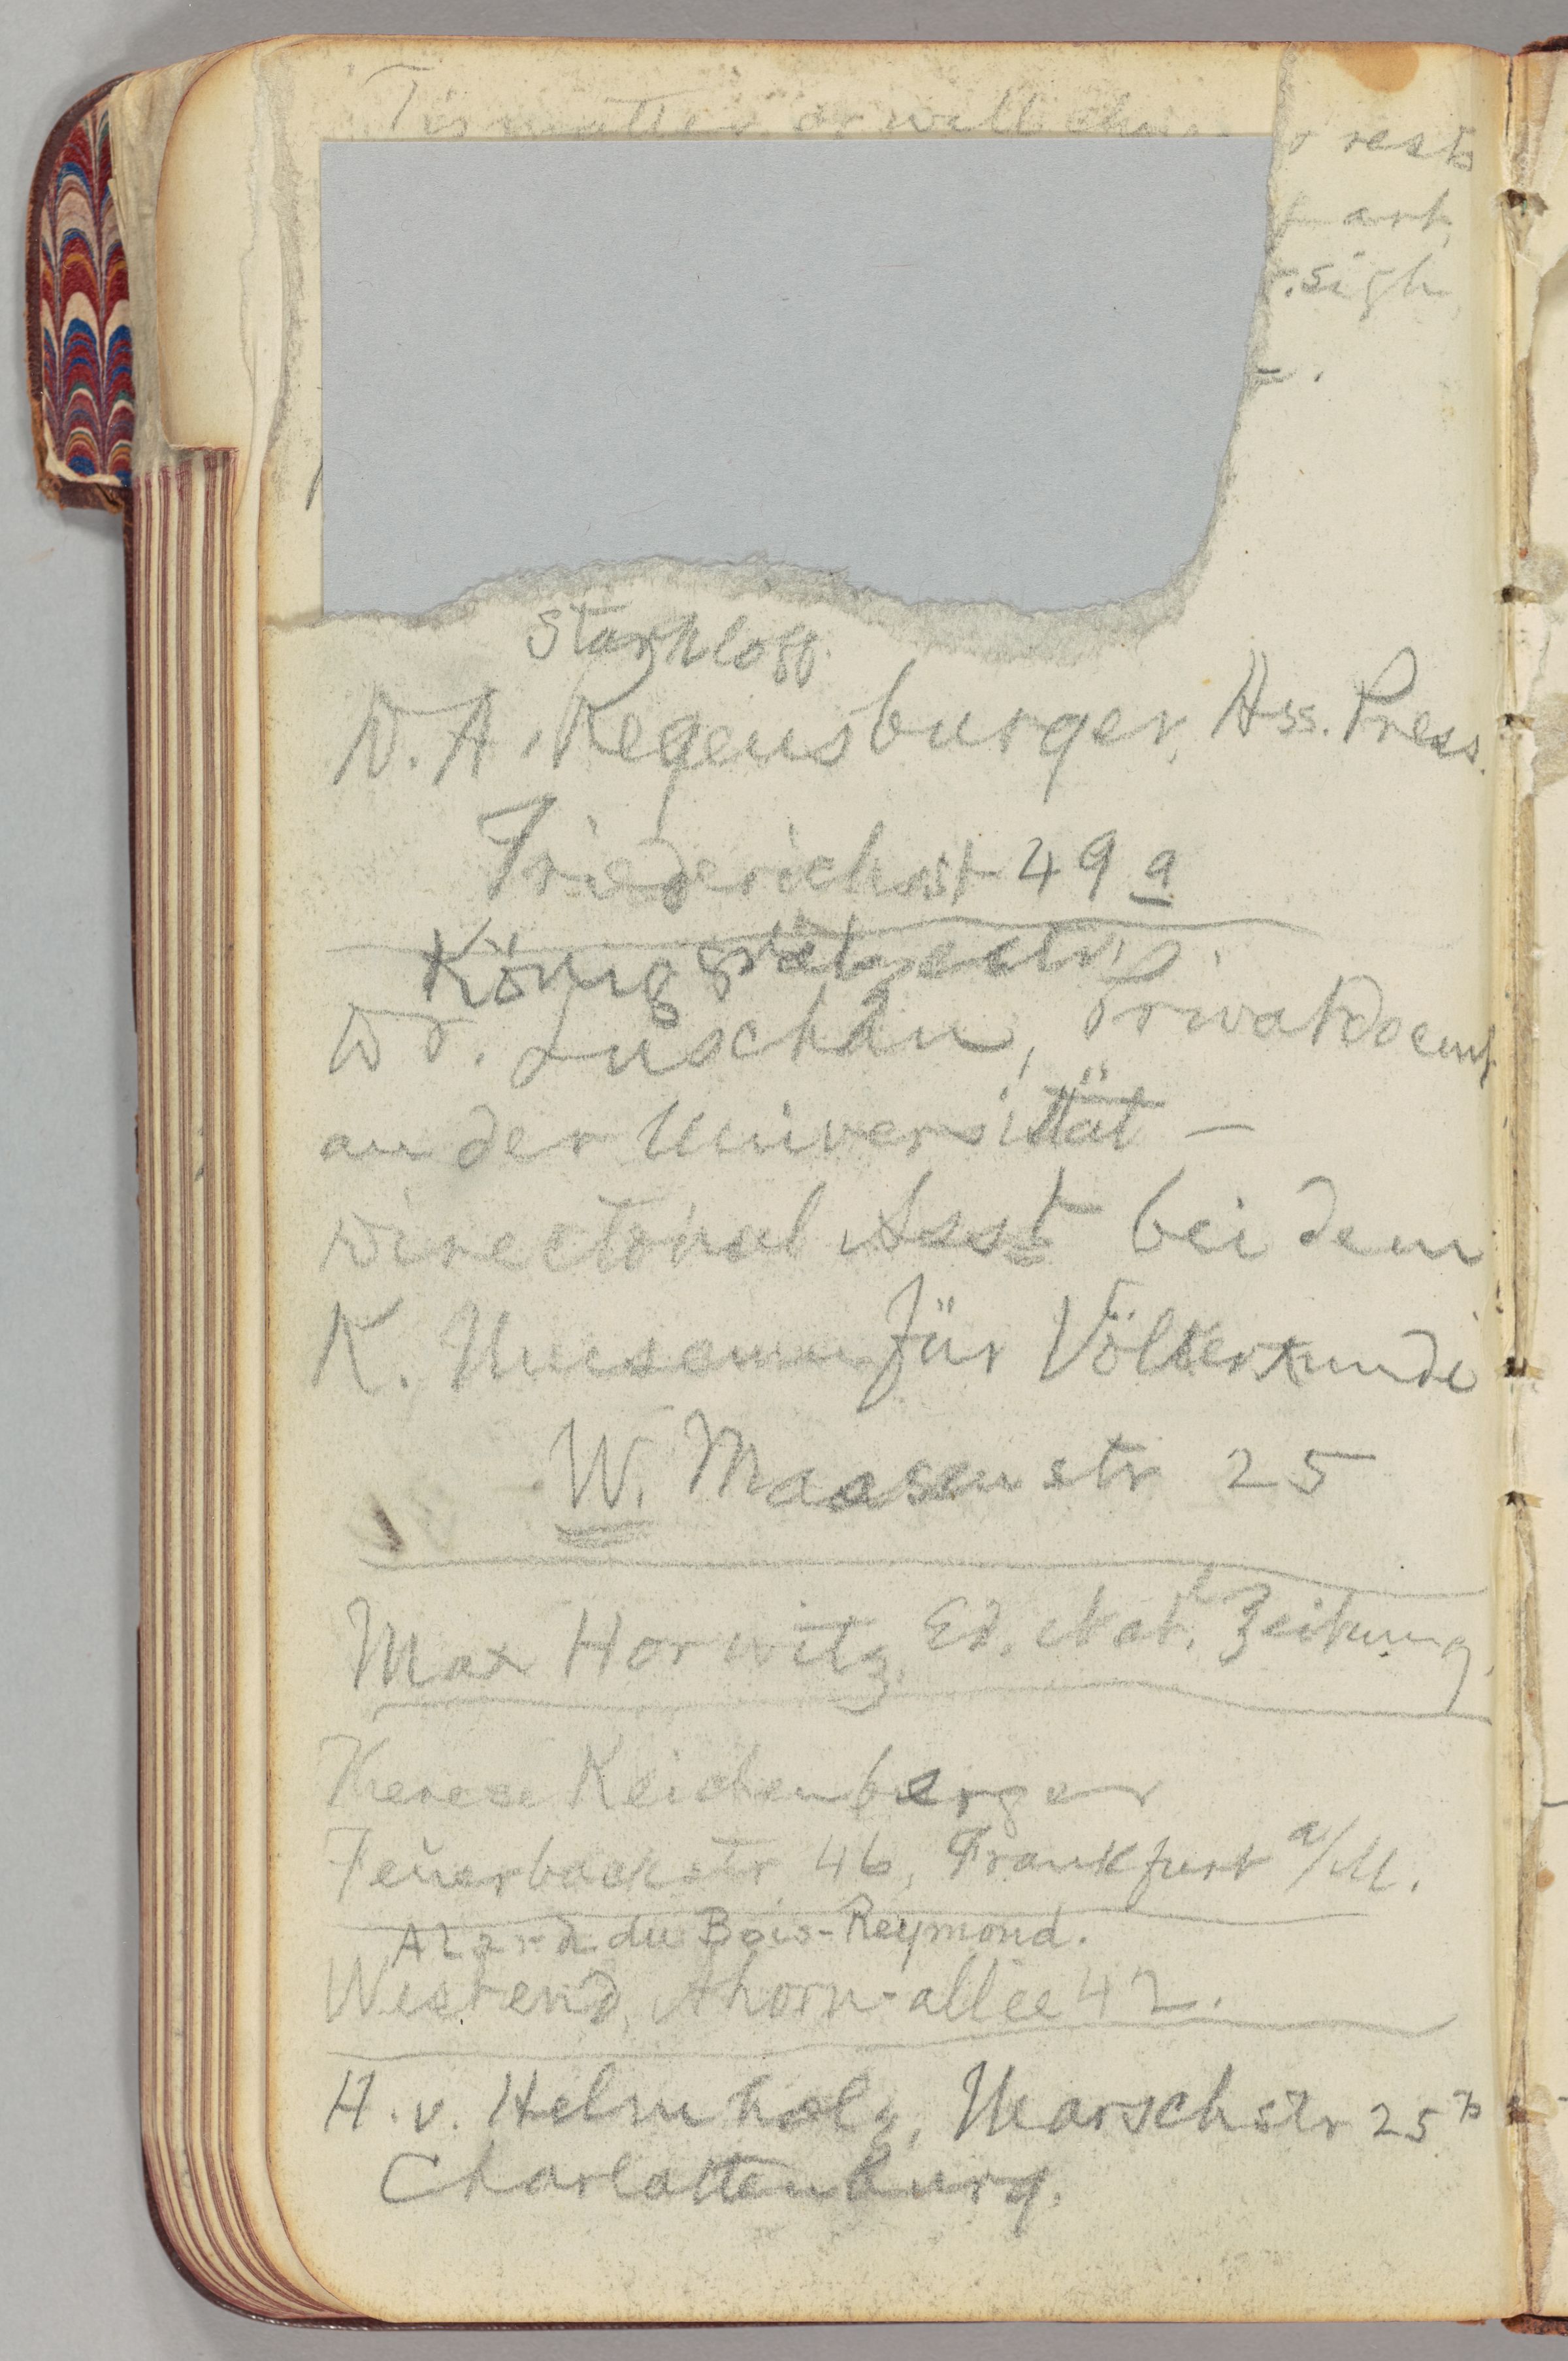 rests
art
sigh
Starkloff
D. A. Regensburger, Ass. Press.
Friederichst 49 a
Königgrätzestr.
Dr. Luschan, Privatdocent
an der Universität —
Directorial Asst bei dem
K. Museum für Völkerkunde
W. Maasenstr 25
Max Horwitz, Ed. Natl. Zeitung.
Therese Reichenberger
Feuerbachstr 46, Frankfurt a/M.
Alard du Bois-Reymond.
Westend, Ahorn-allee 42.
H. v. Helmholz, Marschstr 25 b
Charlottenburg.